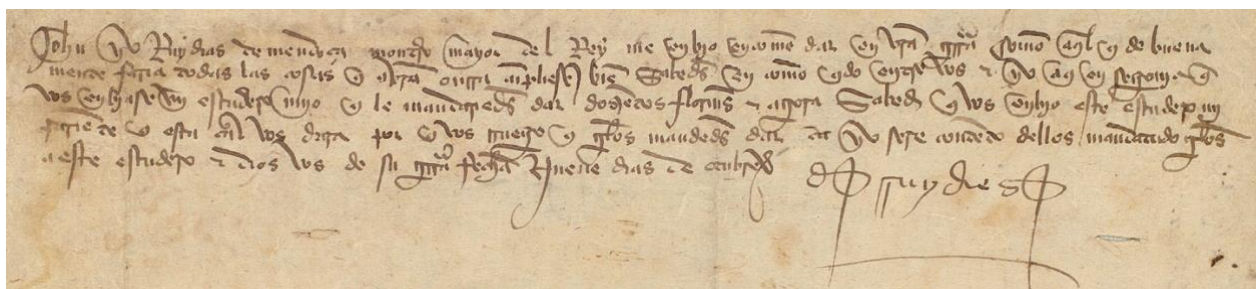 yo Ruy dias de mendoça mont̃o mayor del Rey me enbyo encomẽdar en vr̃a gr̃a como aq̃l q̃ de buena
mente faria todas las cosas q̃ a vr̃a onrra cunpliesẽ bien Sabedes en como q̃do entre vos & yo aqui en segouia q̃
vos enbiase un escudero mio q̃ le mandariedes dar dosientos florines & agora Sabed q̃ vos enbyo este escudero mi
pariente q̃ esta cr̃a vos dara por q̃ vos rruego q̃ gelos mandedes dar ca yo sere contento dellos mandando gelos
a este escudero & dios vos de su gr̃a fecha nueue dias de otubre
Ruy dies